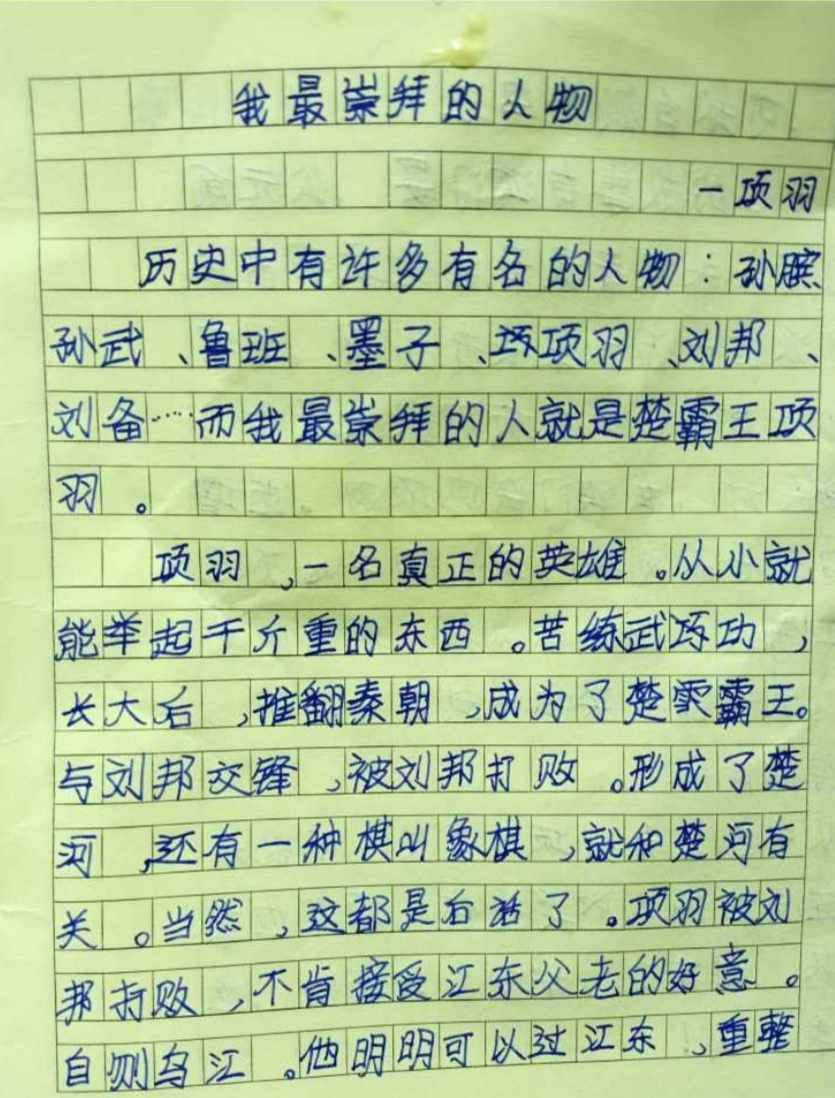 我最崇拜的人物
一项羽
历史中有许多有名的人物：孙膑
孙武、鲁班、墨子、项羽、刘邦、
刘备……而我最崇拜的人就是楚霸王项
羽。
项羽，一名真正的英雄。从小就
能举起千斤重的东西。苦练武功，
长大后，推翻秦朝，成为了楚霸王。
与刘邦交锋，被刘邦打败。形成了楚
河，还有一种棋叫象棋，就和楚河有
关。当然，这都是后话了。项羽被刘
邦打败，不肯接受江东父老的好意。
自刎乌江。他明明可以过江东，重整